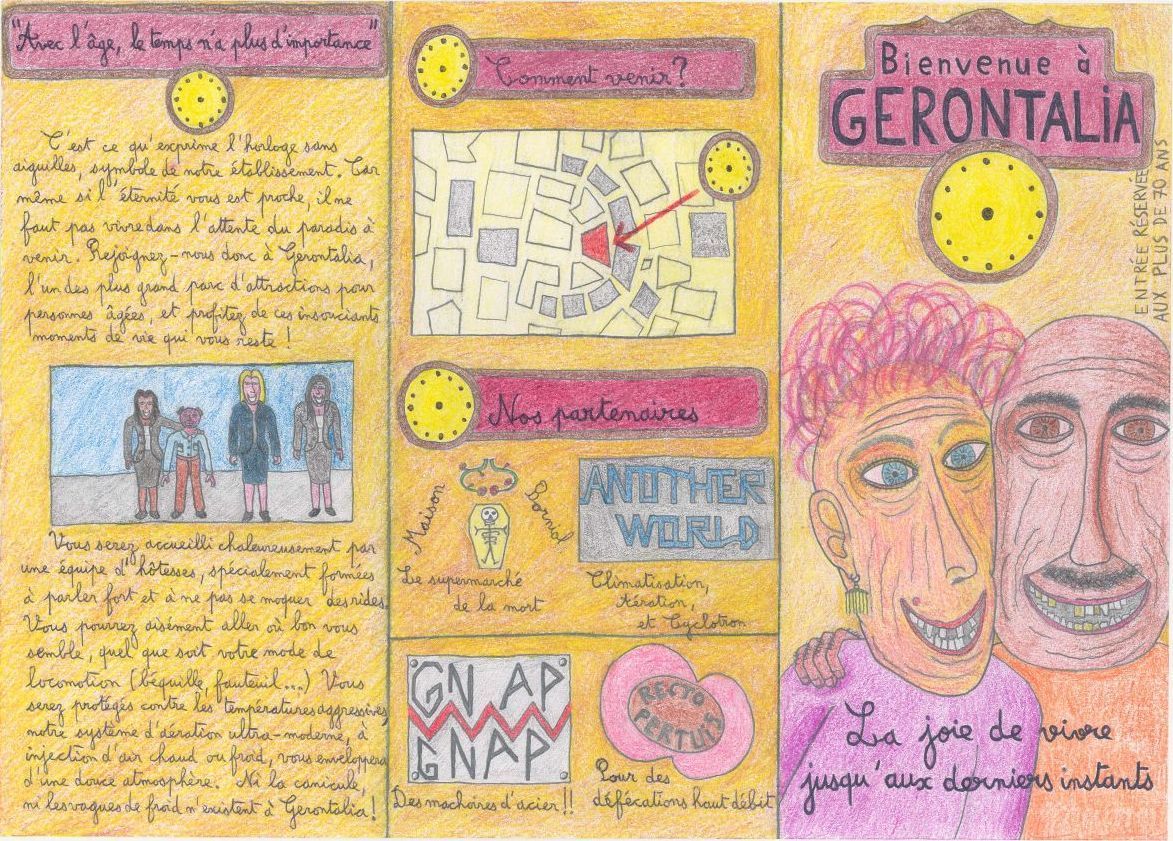 "Avec l'âge, le temps n'a plus d'importance"
C'est ce qu'exprime l'horloge sans
aiguilles, symbole de notre établissement. Car
même si l'éternité vous est proche, il ne
faut pas vivre dans l'attente du paradis à
venir. Rejoignez-nous donc à Gerontalia,
l'un des plus grand parc d'attractions pour
personnes âgées, et profitez de ces insouciants
moments de vie qui vous reste !
Vous serez accueilli chaleureusement par
une équipe d'hôtesses, spécialement formées
à parler fort et à ne pas se moquer des rides.
Vous pourrez aisément aller où bon vous
semble, quel que soit votre mode de
locomotion (béquille, fauteuil...) Vous
serez protégés contre les températures aggressives,
notre système d'aération ultra-moderne, à
injection d'air chaud ou froid, vous enveloppera
d'une douce atmosphère. Ni la canicule,
ni les vagues de froid n'existent à Gerontalia !
Comment venir ?
Nos partenaires
Maison Borniol
Le supermarché
de la mort
ANOTHER
WORLD
Climatisation,
Aération,
et Cyclotron
GNAP
GNAP
Des machoires d'acier !!
RECTO
PERTUIS
Pour des
défécations haut débit
Bienvenue à
GERONTALiA
ENTRÉE RÉSERVÉE
AUX PLUS DE 70 ANS
La joie de vivre
jusqu'aux derniers instants